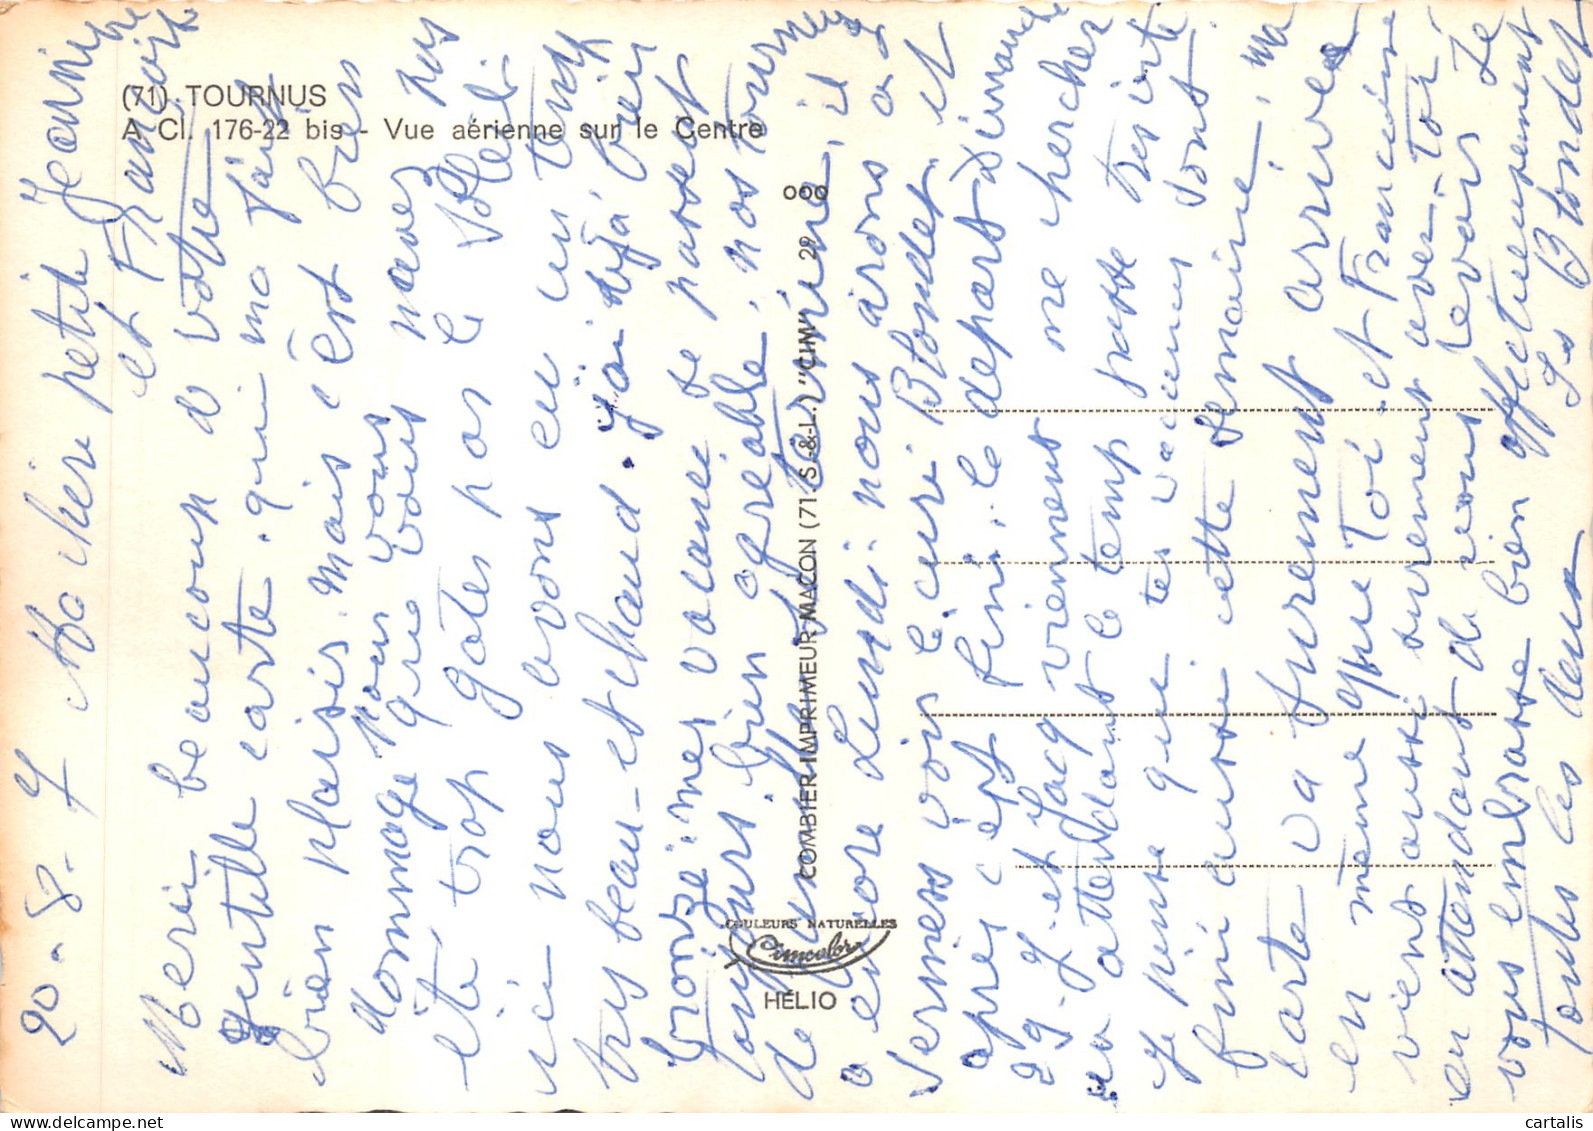 (71) TOURNUS
A Cl. 176-22 bis - Vue aérienne sur le Centre
ooo
COMBIER IMPRIMEUR MACON (71. S.-&-L.) "CIM" 29
COULEURS NATURELLES
Cimcolor
HÉLIO
20-8-7 Ma chère petite Jeannine
et Francois
Merci beaucoup d votre
gentille carte. qui ma fait
bien plaisir. mais c'est bien
dommage pour vous
que vous navez pas
été trop gâtés par le soleil.
ici nous avons eu un temps
tres beau - et chaud. jai déjà bien
bronzé. mes vacance se passent
toujours bien agreable. nos tournée
de vendeur se termine, il y
a encore Lundi. nous avons a
Vermess voir le curé Blondet. et
apres c'est fini. le depart Dimanche
29 - J. et Jacq viennent me chercher
en attendant le temp passe tres vite
Je pense que tes vacances sont
fini aussi cette semaine. ma
carte va surement arrivée
en même que toi. et Francine
vient aussi surement avec toi
en attendant de vous revoir Je
vous embrasse bien affectueusement
tous les deux Is Blondet